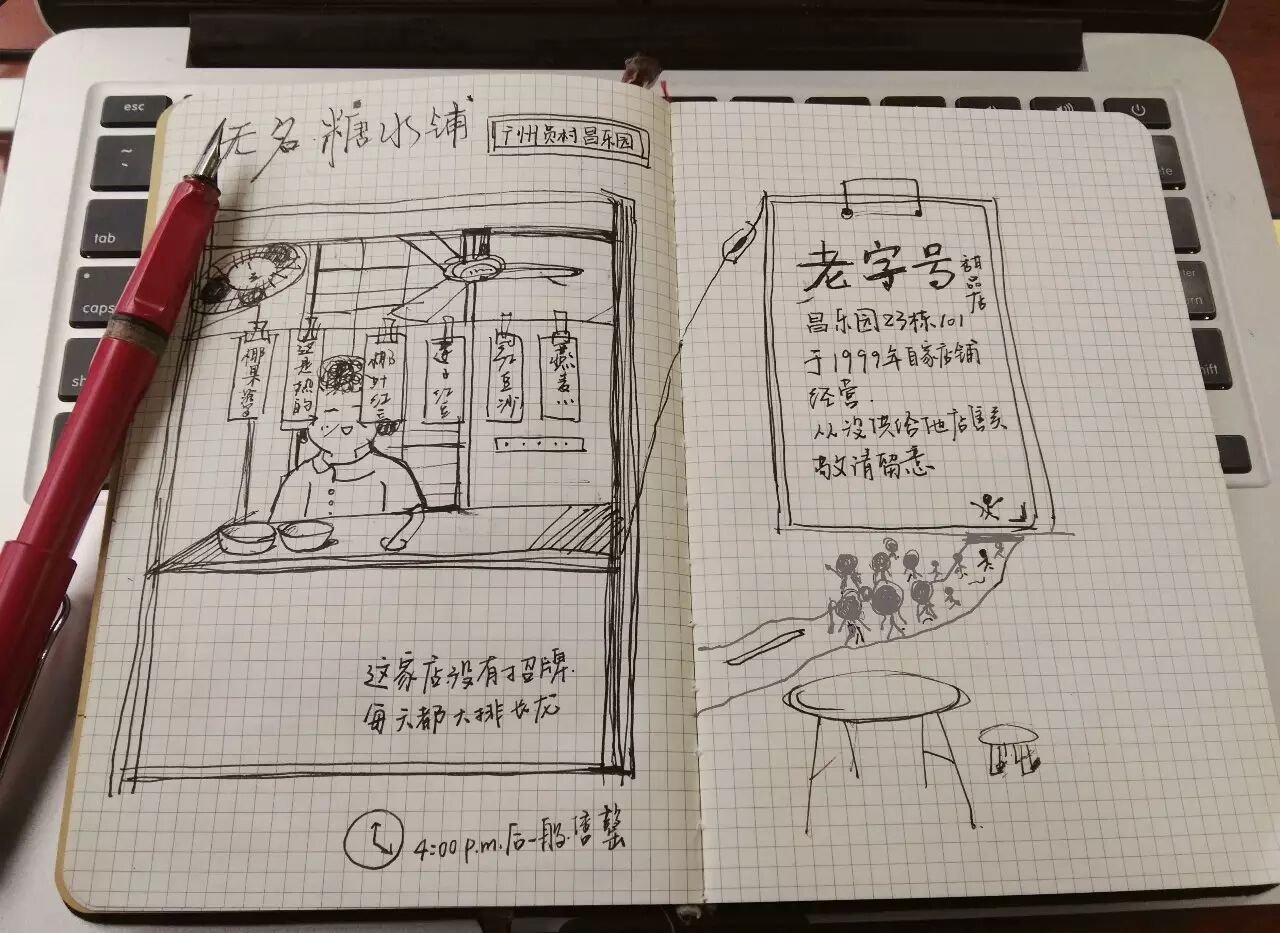 无名糖水铺
广州员村昌乐园
椰果
这是热的
椰汁红豆
莲子红豆
红豆沙
燕麦
这家店没有招牌.
每天都大排长龙
4:00 p.m.后一般售罄
老字号
甜品店
昌乐园23栋101
于1999年自家店铺
经营.
从没供给他店售卖
敬请留意
esc
tab
caps